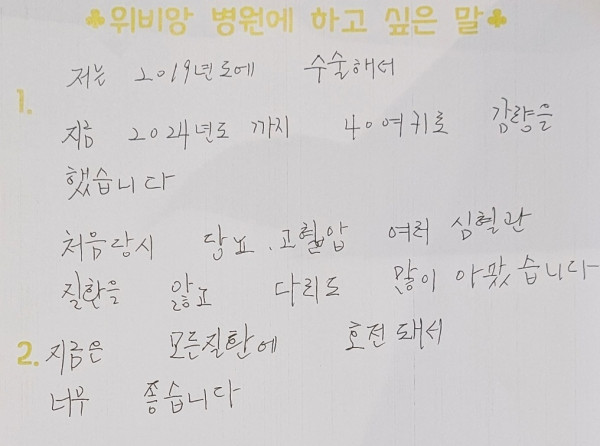 ♣위비앙 병원에 하고 싶은 말♣
1. 저는 2019년도에 수술해서
지금 2024년도 까지 40여키로 감량을
했습니다
처음당시 당뇨, 고혈압 여러 심혈관
질환을 앓고 다리도 많이 아팠습니다
2. 지금은 모든질환에 호전돼서
너무 좋습니다